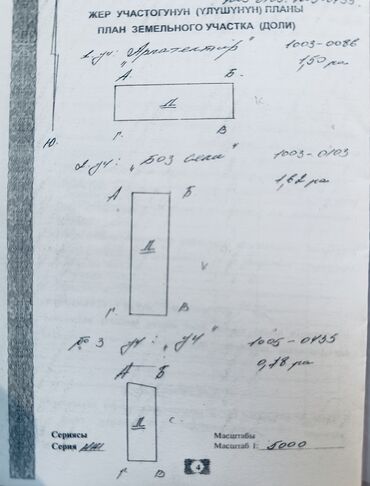 ЖЕР УЧАСТОГУНУН (ҮЛҮШҮНҮН) ПЛАНЫ
ПЛАН ЗЕМЕЛЬНОГО УЧАСТКА (ДОЛИ)
уч: „Арпатектир" 1003-0086
1,50 га
А Б.
П
Г. В
Ю.
2 уч: „Боз сели" 1003-0103
1,82 га
А Б
П
Г В
№ 3 уч: „уч" 1005-0435
0,78 га
А Б
П с.
Г В
Сериясы Масштабы
Серия Масштаб 1: 5000
4